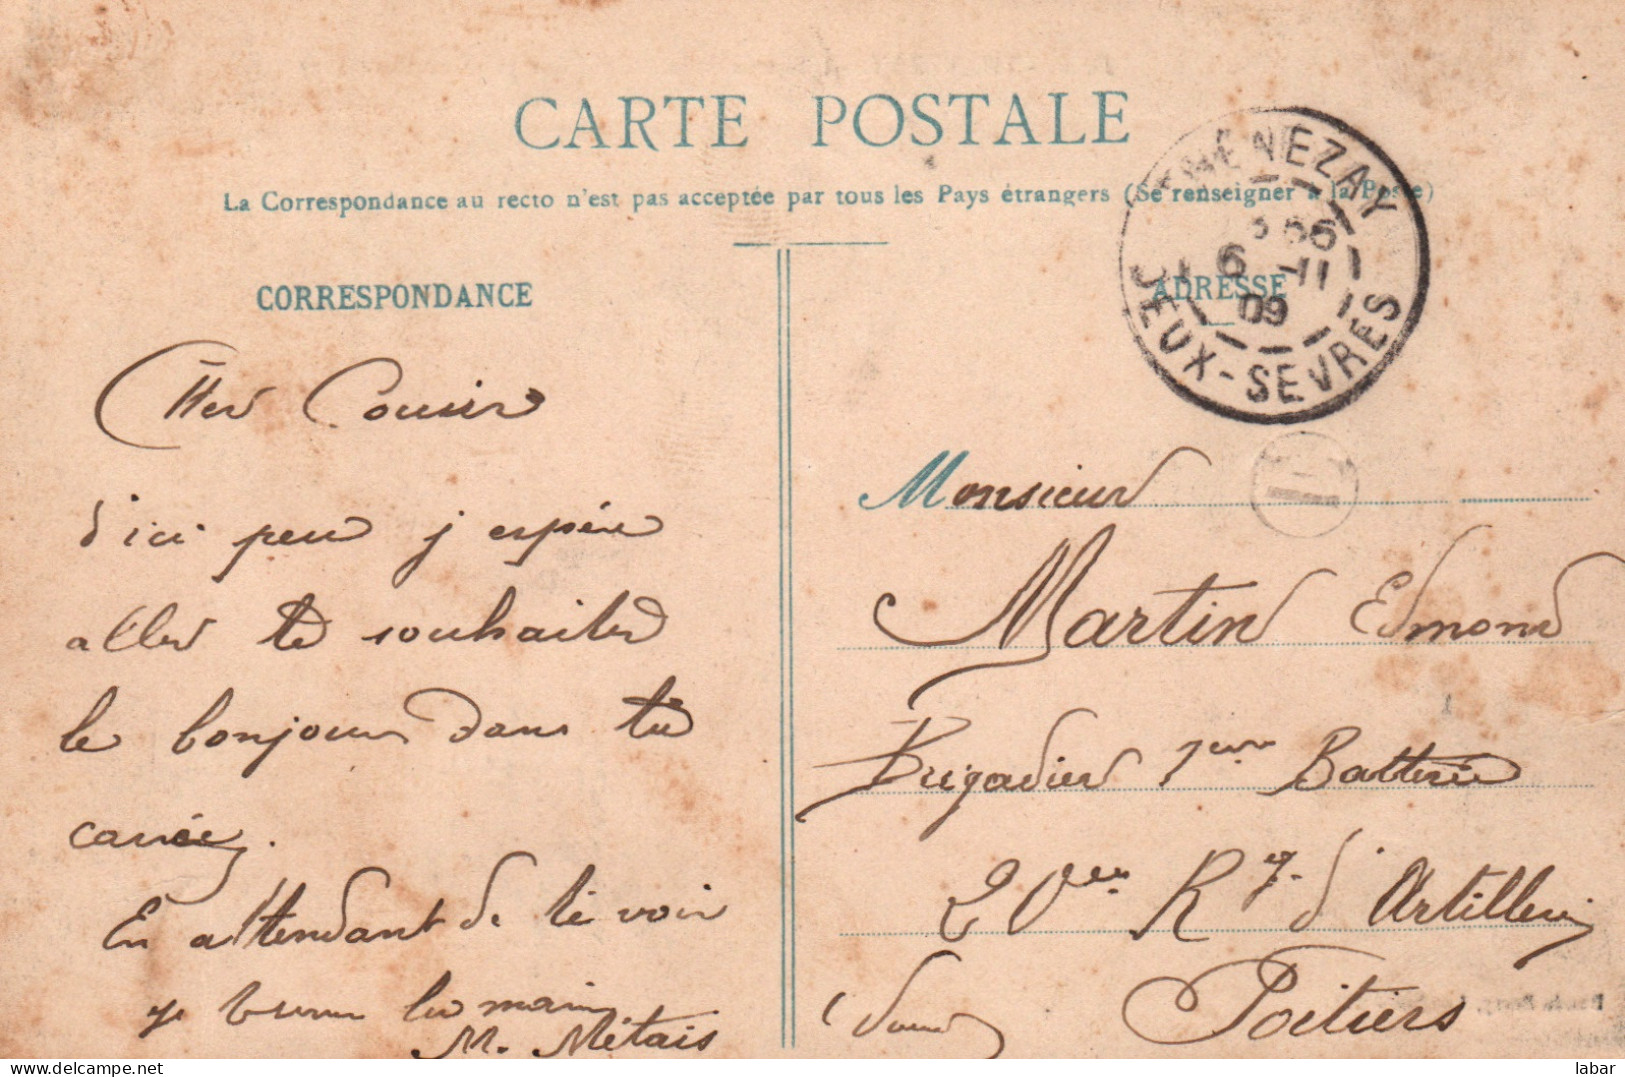 CARTE POSTALE
La Correspondance au recto n'est pas acceptée par tous les Pays étrangers (Se renseigner à la Poste)
CORRESPONDANCE
Cher Cousin
d'ici peu j espère
aller te souhaiter
le bonjour dans ta
carrée.
En attendant de te voir
je serre la main
M. Métais
ADRESSE
THÉNEZAY
6 -11
09
DEUX-SEVRES
Monsieur
Martin Edmond
Brigadier 1ère Batterie
20eme Rg. d'Artillerie
Poitiers
labar